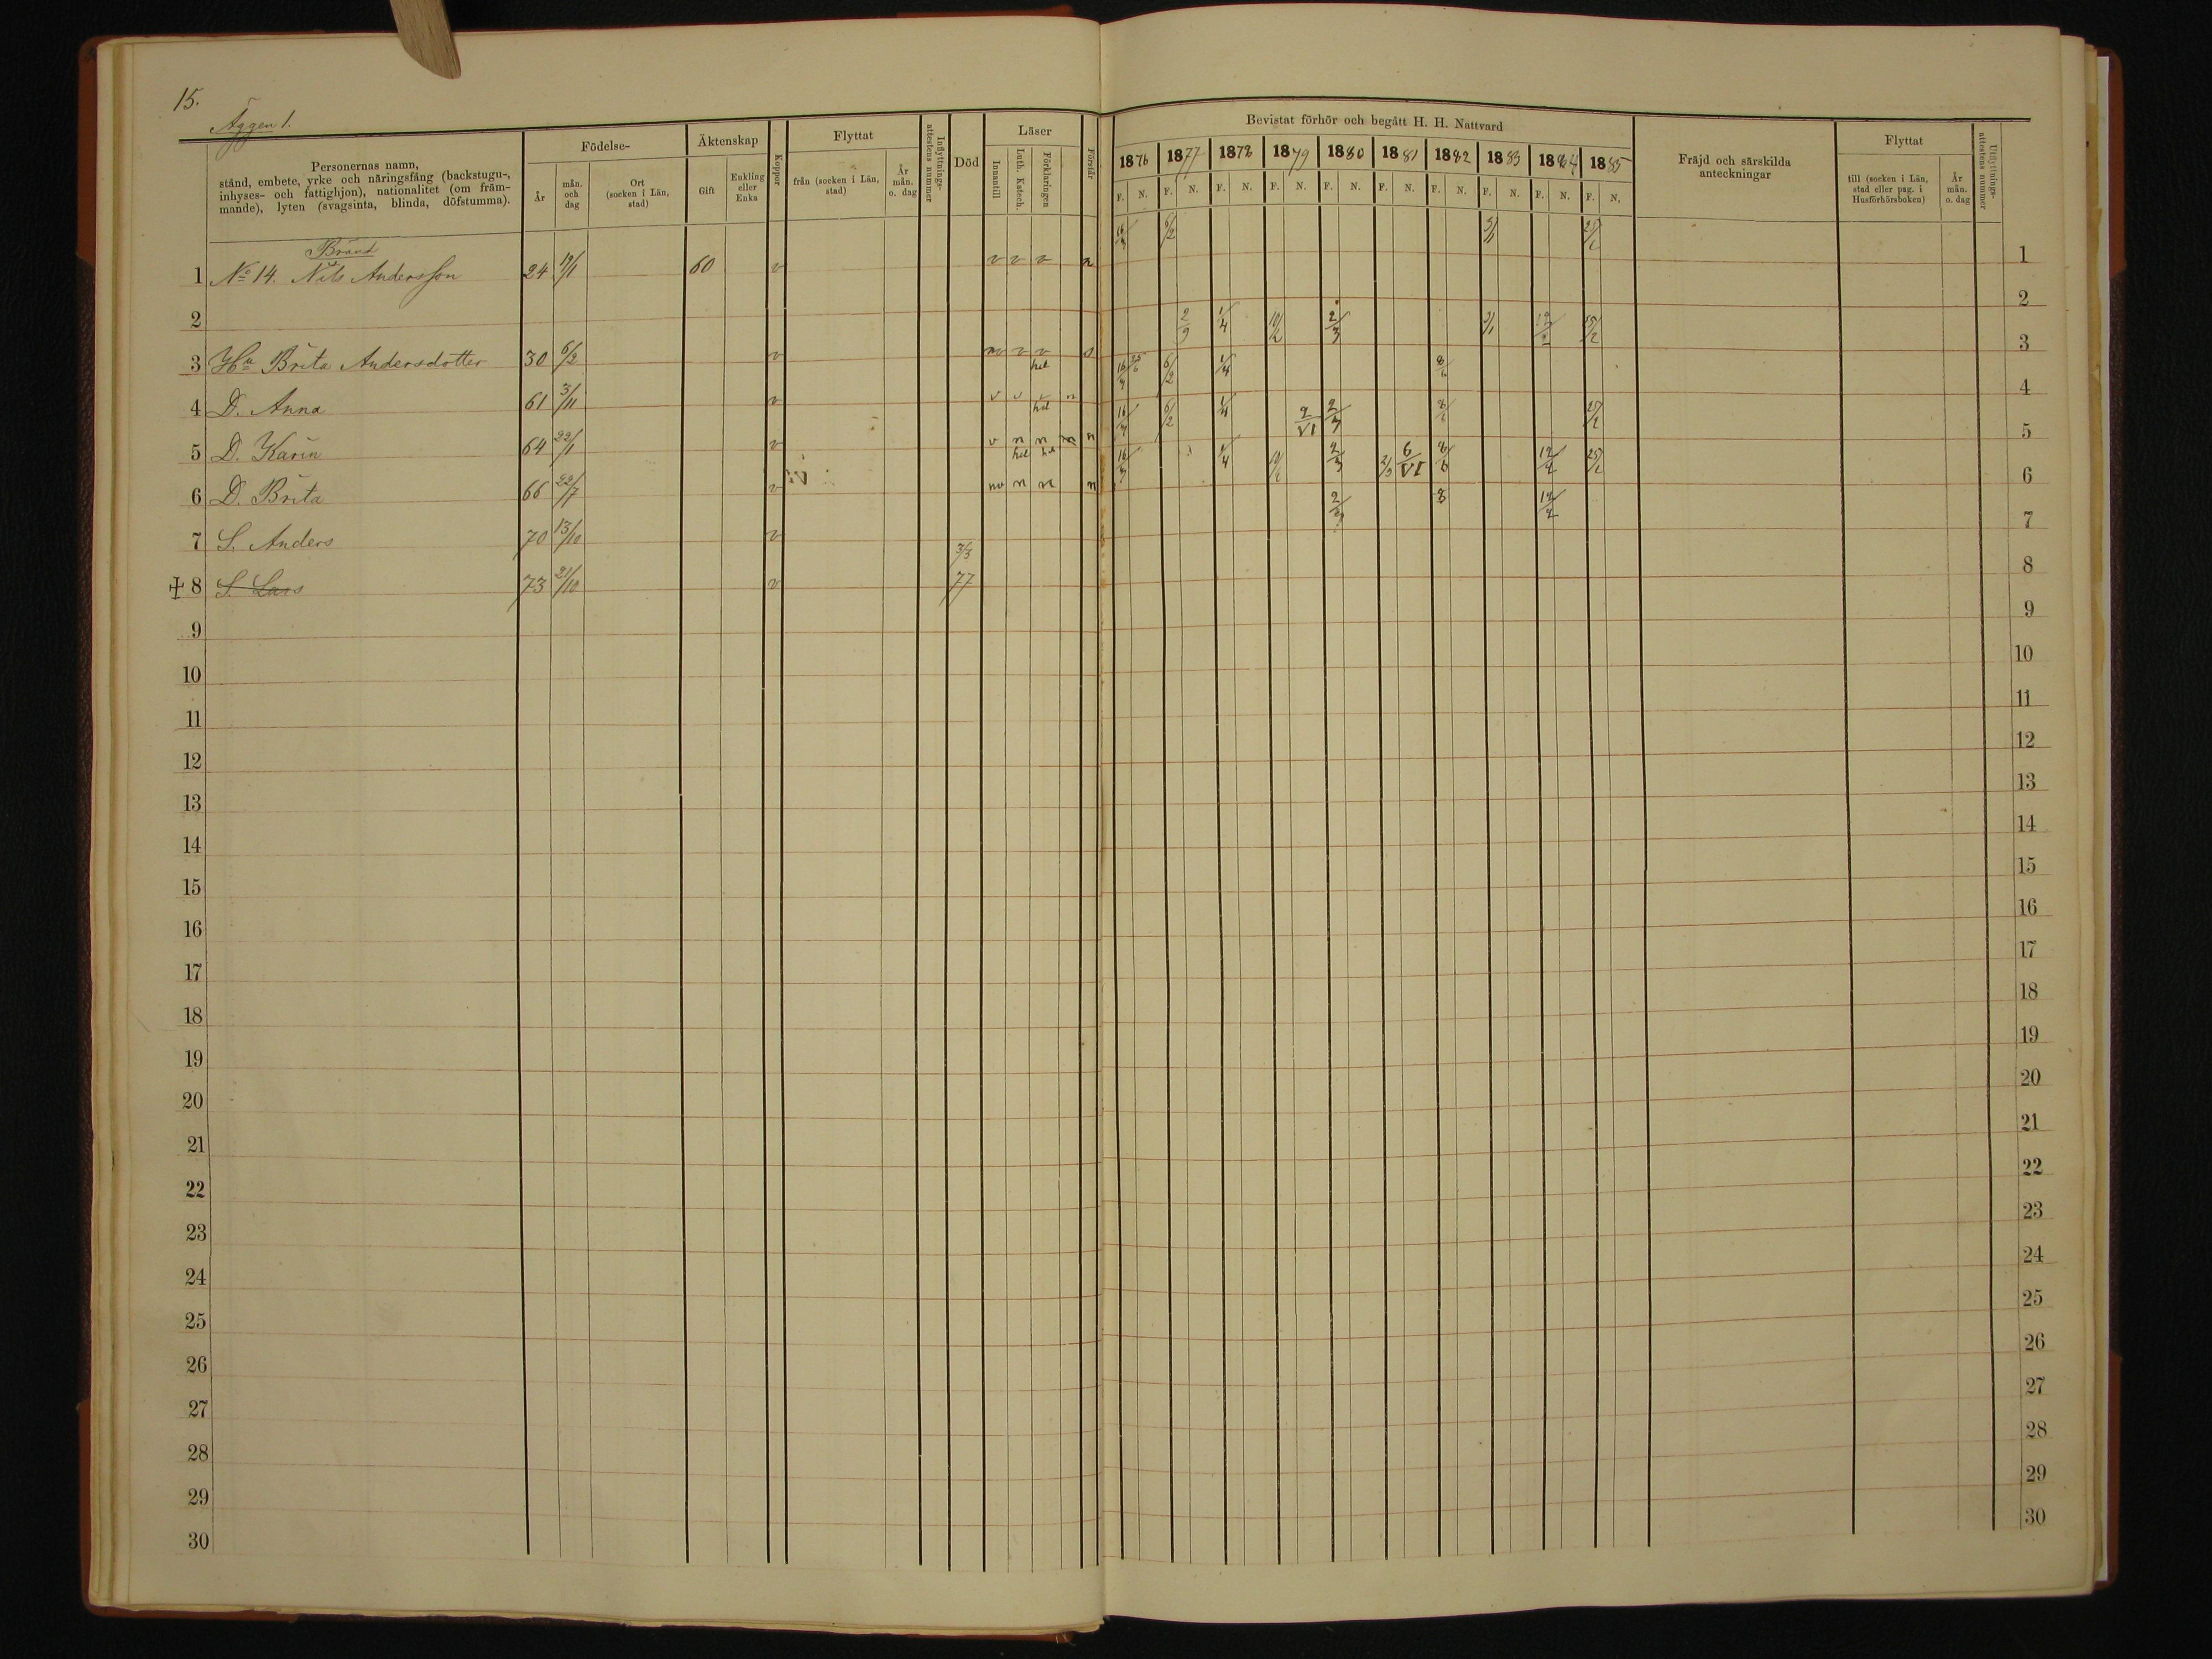 15.
Äggen 1.
Personernas namn,
stånd, embete, yrke och näringsfång (backstugu-,
inhyses- och fattighjon), nationalitet (om främ-
mande), lyten (svagsinta, blinda, döfstumma).
Födelse-
År
mån. och dag
Ort (socken i Län, stad)
Äktenskap
Gift
Enkling eller Enka
Koppor
Flyttat
från (socken i Län, stad)
År mån. o. dag
Inflyttnings-attestens nummer
Död
Läser
Innantill
Luth. Katech.
Förklaringen
Förstår
Bevistat förhör och begått H. H. Nattvard
1876 1877 1878 1879 1880 1881 1882 1883 1884 1885
F. N. F. N. F. N. F. N. F. N. F. N. F. N. F. N. F. N. F. N.
Fräjd och särskilda anteckningar
Flyttat
till (socken i Län, stad eller pag. i Husförhörsboken)
År mån. o. dag
Utflyttnings-attestens nummer
Brånd
1 No 14. Nils Andersson 24 19/1 60 v v v v 6/2 1
2 2
3 Hu Brita Andersdotter 30 6/2 v v v 2/9 1/4 10/2 2/3 3
4 D. Anna 61 3/11 v v v 6/2 1/4 8/6 4
5 D. Karin 64 22/1 v v n n n 6/2 1/4 2/VI 2/3 8/6 5
6 D. Brita 66 22/7 v n n n 1/4 2/3 6/VI 8/6 12/2 6
7 S. Anders 70 13/10 v 2/3 8 12/2 7
8 S. Lars 73 21/10 v 3/3 77 8
9 9
10 10
11 11
12 12
13 13
14 14
15 15
16 16
17 17
18 18
19 19
20 20
21 21
22 22
23 23
24 24
25 25
26 26
27 27
28 28
29 29
30 30